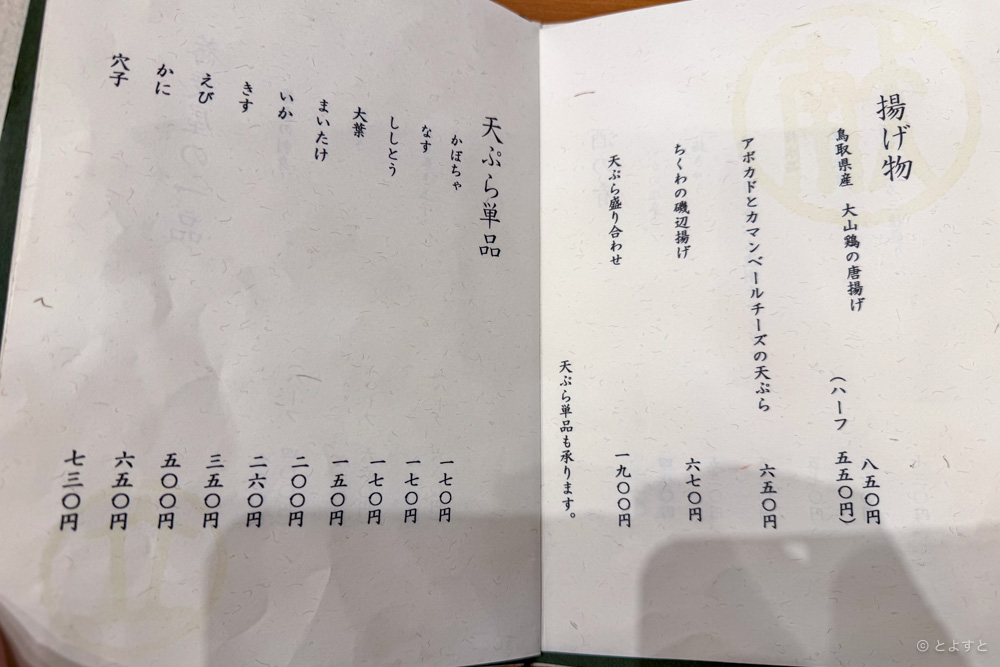 揚げ物
鳥取県産 大山鶏の唐揚げ 八五〇円
(ハーフ 五五〇円)
アボカドとカマンベールチーズの天ぷら 六五〇円
ちくわの磯辺揚げ 六七〇円
天ぷら盛り合わせ 一九〇〇円
天ぷら単品も承ります。
天ぷら単品
かぼちゃ 一七〇円
なす 一七〇円
ししとう 一七〇円
大葉 一五〇円
まいたけ 二〇〇円
いか 二六〇円
きす 三五〇円
えび 五〇〇円
かに 六五〇円
穴子 七三〇円
© とよすと